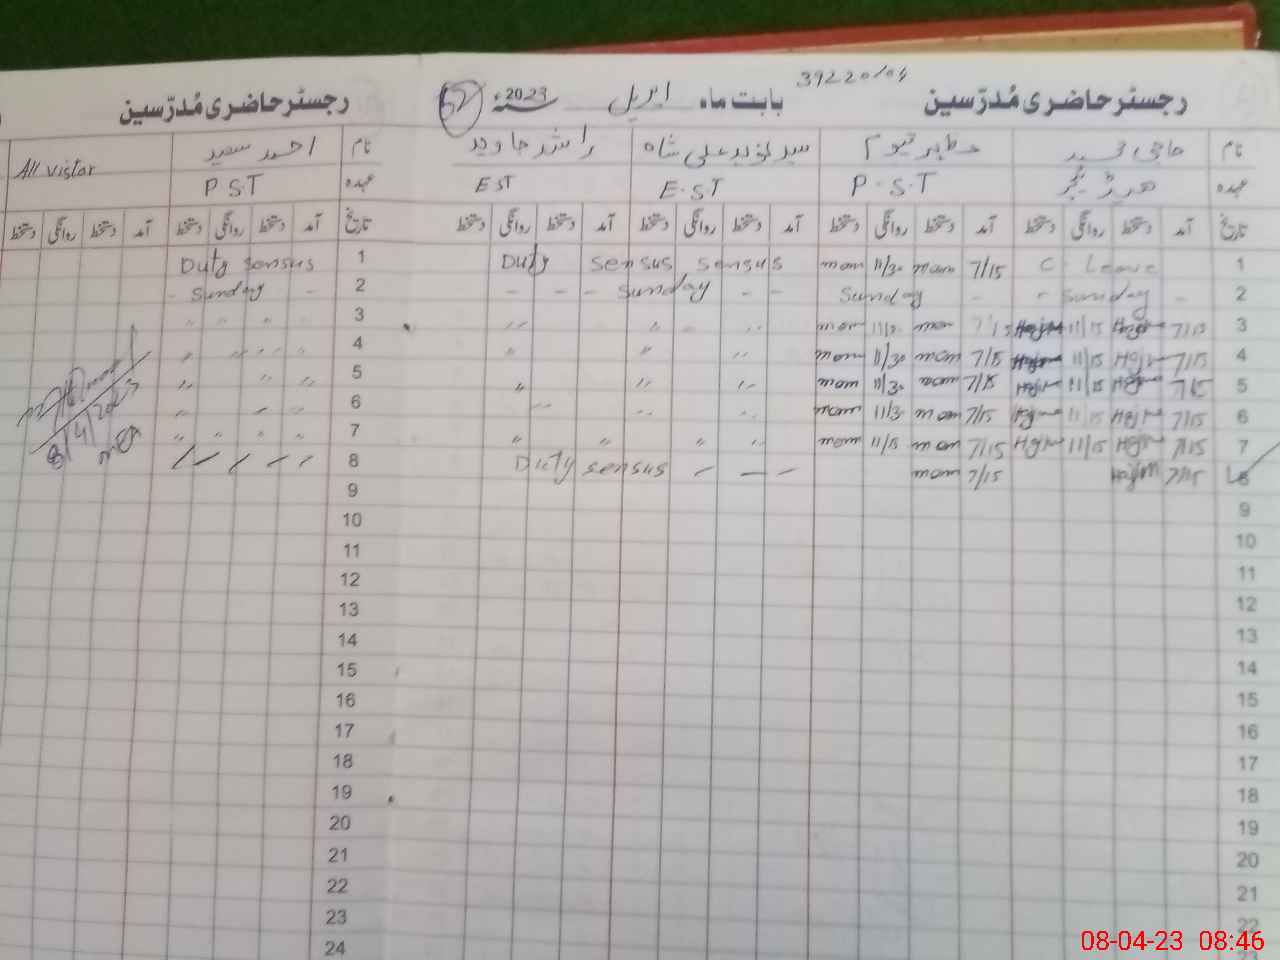 39220104
رجسٹر حاضری مُدرّسین بابت ماہ اپریل سنہ 2023ء 52 رجسٹر حاضری مُدرّسین
نام حاجی محمد طاہر قیوم سید نوید علی شاہ راشد جاوید نام احمد سعید All vistor
عہدہ ہیڈ ٹیچر P.S.T E.S.T EST عہدہ P S.T
تاریخ آمد دستخط روانگی دستخط آمد دستخط روانگی دستخط آمد دستخط روانگی دستخط آمد دستخط روانگی دستخط تاریخ آمد دستخط روانگی دستخط آمد دستخط روانگی دستخط
1 C Leave 7/15 11/30 Duty sensus sensus 1 Duty sensus
2 - Sunday - - Sunday - - Sunday - - - 2 - Sunday -
3 7/15 11/15 7/15 " " " 3 " " " "
4 7/15 11/15 7/15 11/30 " " " 4 " " " "
5 7/15 11/15 7/15 " " " 5 " " "
6 7/15 11/15 7/15 " " " 6 " " "
7 7/15 11/15 7/15 11/15 " " " " 7 " " " "
8 7/15 7/15 - - - Duty sensus 8
8/4/2023
MEA
9 9
10 10
11 11
12 12
13 13
14 14
15 15
16 16
17 17
18 18
19 19
20 20
21 21
22 22
23 23
24
08-04-23 08:46